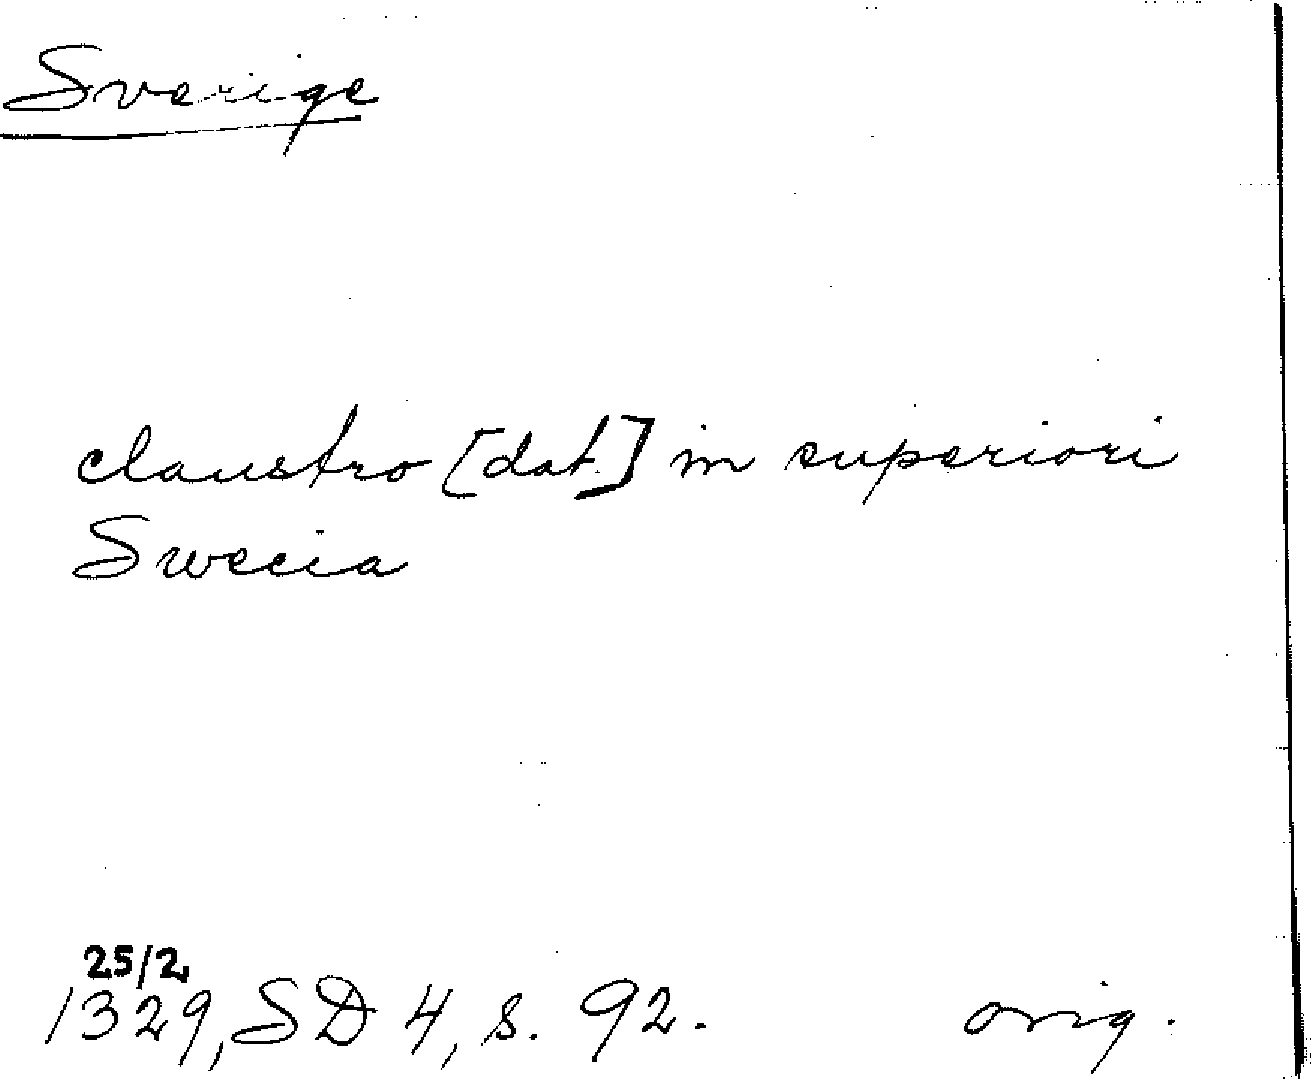 Sverige
claustro [dat.] in superiori
Swecia
25/2
1329, SD 4, s. 92. orig.